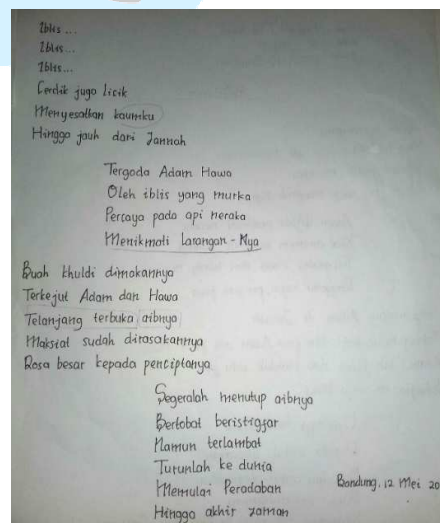 Iblis...
Iblis...
Iblis...
Cerdik juga licik
Menyesatkan kaumku
Hingga jauh dari Jannah
Tergoda Adam Hawa
Oleh iblis yang murka
Percaya pada api neraka
Menikmati Larangan-Nya
Buah khuldi dimakannya
Terkejut Adam dan Hawa
Telanjang terbuka aibnya
Maksiat sudah dirasakannya
Rasa besar kepada penciptanya
Segeralah menutup aibnya
Bertobat beristigfar
Namun terlambat
Turunlah ke dunia
Memulai Peradaban
Hingga akhir zaman
Bandung, 12 Mei 20